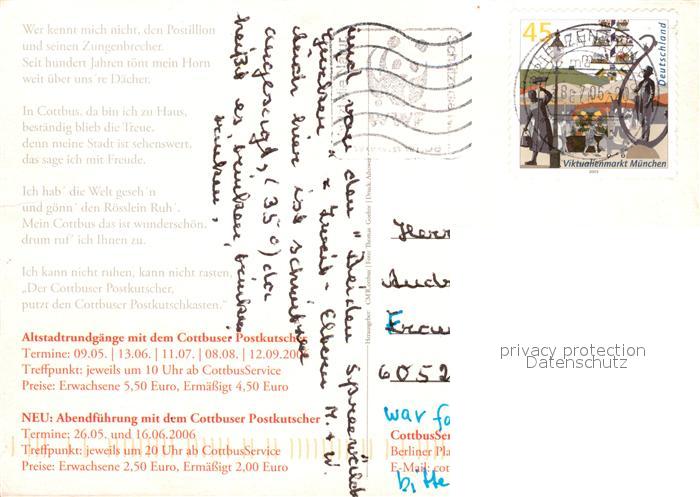 Wer kennt mich nicht, den Postillion
und seinen Zungenbrecher.
Seit hundert Jahren tönt mein Horn
weit über uns´re Dächer.
In Cottbus. da bin ich zu Haus,
beständig blieb die Treue.
denn meine Stadt ist sehenswert,
das sage ich mit Freude.
Ich hab´ die Welt geseh´n
und gönn´ den Rösslein Ruh´.
Mein Cottbus das ist wunderschön.
drum ruf´ ich Ihnen zu.
Ich kann nicht ruhen, kann nicht rasten,
„Der Cottbuser Postkutscher,
putzt den Cottbuser Postkutschkasten."
Altstadtrundgänge mit dem Cottbuser Postkutscher
Termine: 09.05. | 13.06. | 11.07. | 08.08. | 12.09.2006
Treffpunkt: jeweils um 10 Uhr ab CottbusService
Preise: Erwachsene 5,50 Euro, Ermäßigt 4,50 Euro
NEU: Abendführung mit dem Cottbuser Postkutscher
Termine: 26.05. und 16.06.2006
Treffpunkt: jeweils um 20 Uhr ab CottbusService
Preise: Erwachsene 2,50 Euro, Ermäßigt 2,00 Euro
und von den "Beiden Spreewald
gurken" = Zwein-Elbern M. + W.
Auch hier ist schwitzen
angesagt, (35°) da
heißt es, trinken, trinken,
trinken.
Herausgeber: CMT Cottbus | Foto: Thomas Goethe | Druck:
45
Deutschland
Viktualienmarkt München
2003
Herr
Andr
6052
war fa
CottbusSer
Berliner Pla
E-Mail: cot
bitte
privacy protection
Datenschutz